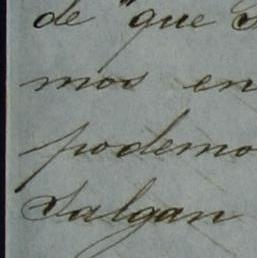 de "que
mos en
podemo
Salgan